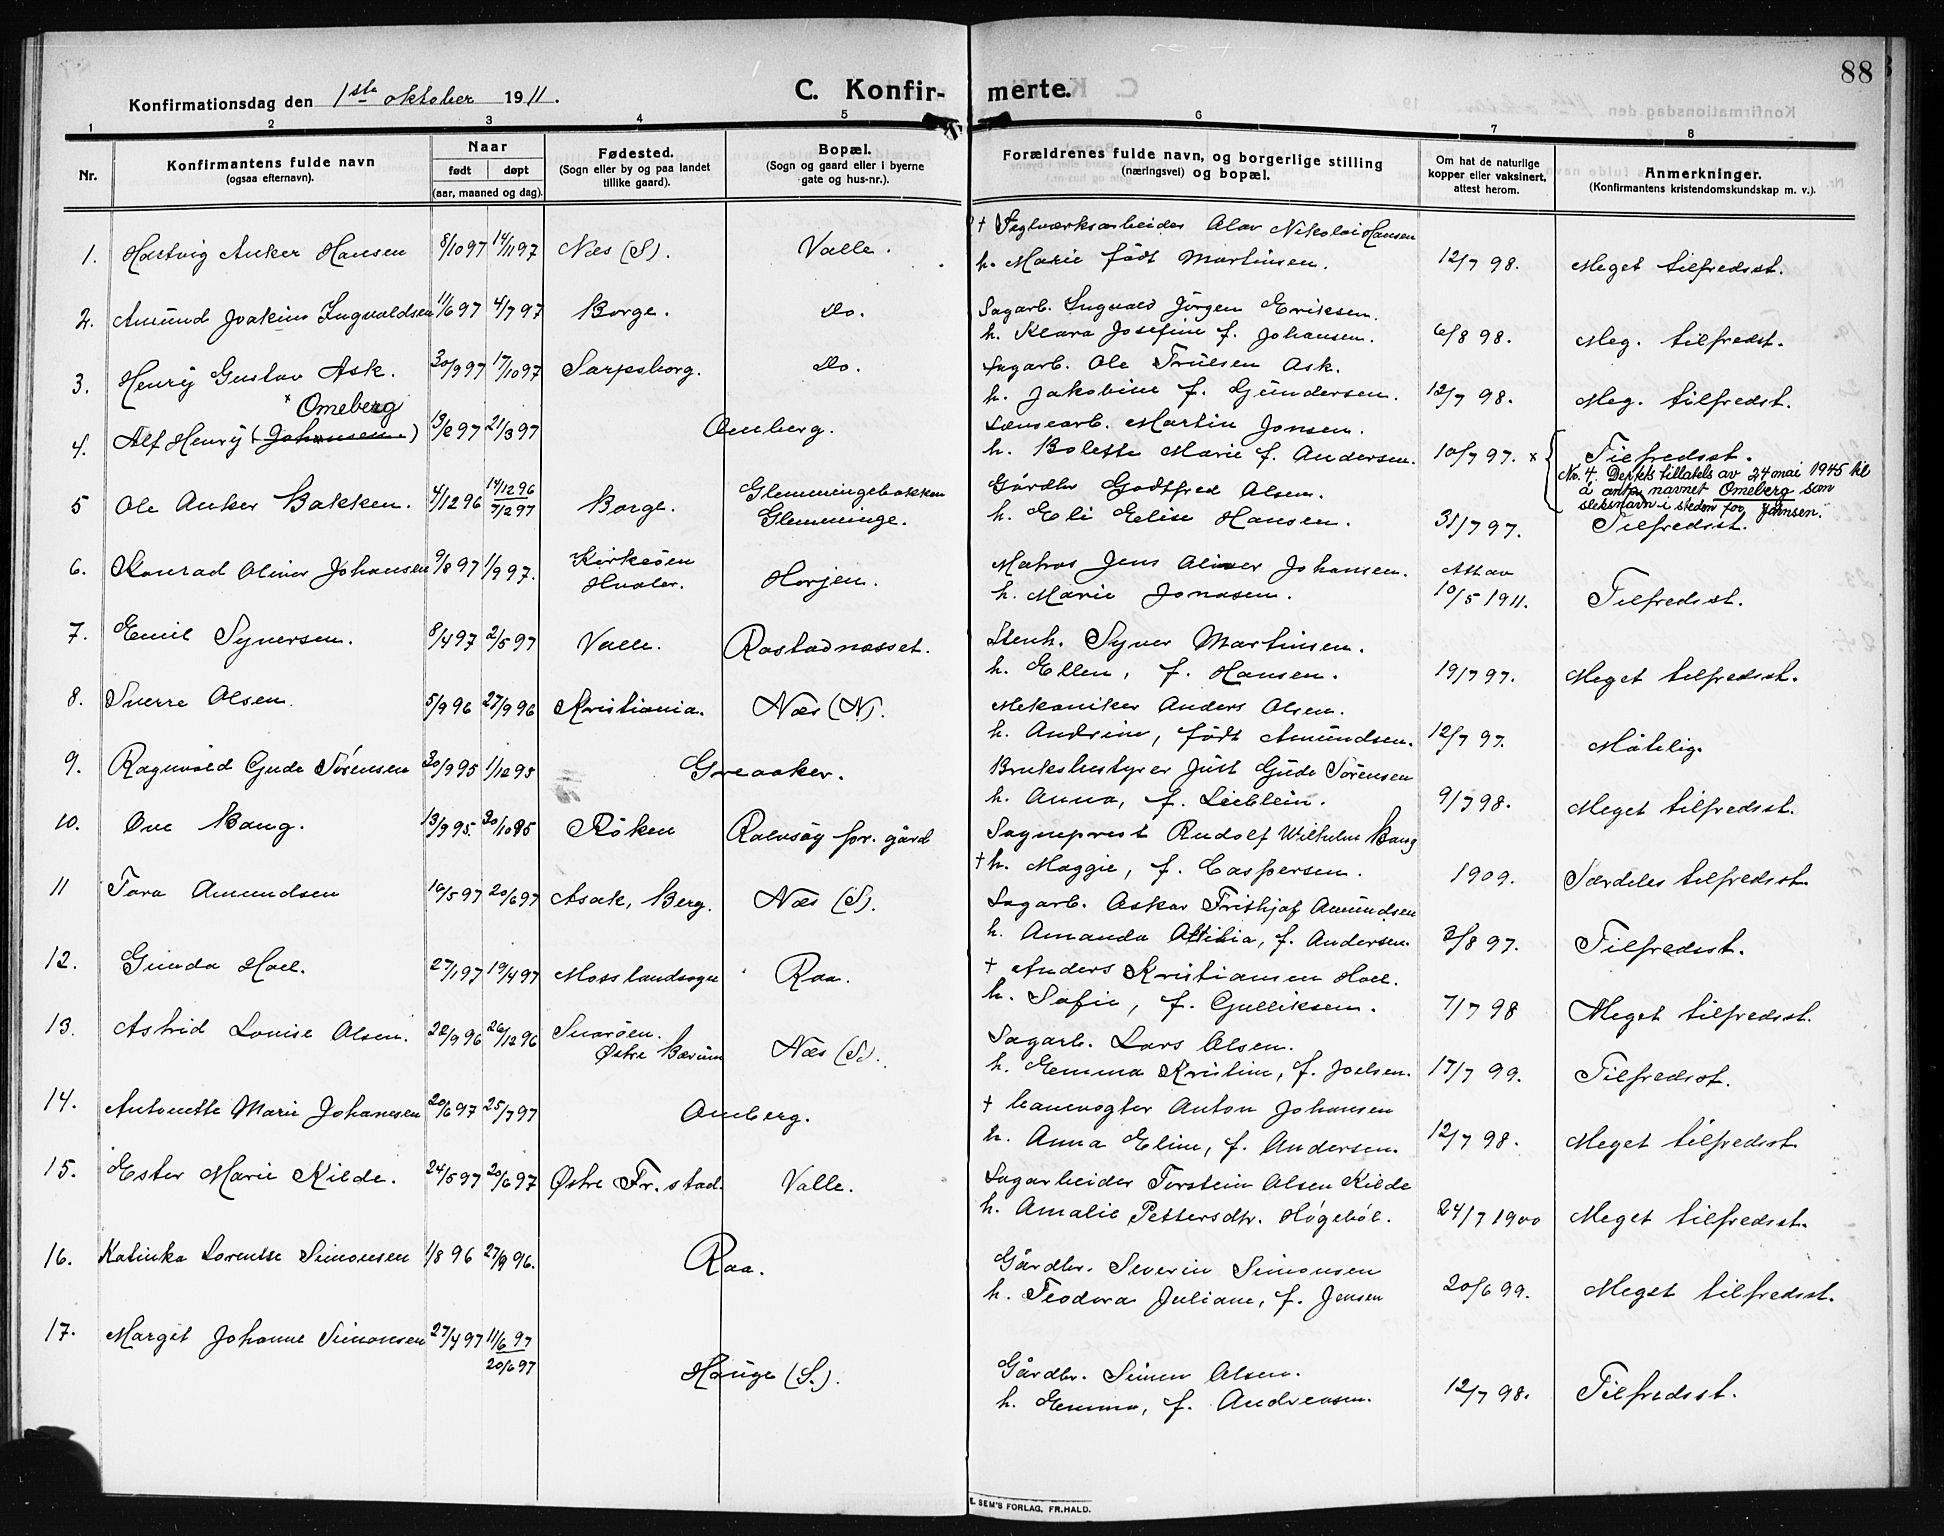 88
Konfirmationsdag den 1ste oktober 1911.
C. Konfirmerte.
1 2 3 4 5 6 7 8
Nr.
Konfirmantens fulde navn
(ogsaa efternavn).
Naar
født døpt
(aar, maaned og dag).
Fødested.
(Sogn eller by og paa landet
tillike gaard).
Bopæl.
(Sogn og gaard eller i byerne
gate og hus-nr.).
Forældrenes fulde navn, og borgerlige stilling
(næringsvei) og bopæl.
Om hat de naturlige
kopper eller vaksinert,
attest herom.
Anmerkninger.
(Konfirmantens kristendomskundskap m. v.).
† Teglværksarbeider Olav Nikolai Hansen
1. Hartvig Anker Hansen 8/10 97 14/11 97 Næs (S). Valle. h. Marie født Martinsen. 12/7 98. Meget tilfredsst.
Sagarb. Ingvald Jörgen Eriksen.
2. Amund Joakim Ingvaldsen 11/6 97 4/7 97 Borge. do. h. Klara Josefine f. Johansen. 6/8 98. Meg. tilfredst.
Sagarb. Ole Trulsen Ask.
3. Henry Gustav Ask. 30/9 97 17/10 97 Sarpsborg. do. h. Jakobine f. Gundersen. 12/7 98. Meg. tilfredst.
× Omeberg
4. Alf Henry (Johansen) 13/2 97 21/3 97 Omberg. Lensearb. Martin Jonsen.
h. Bolette Marie f. Andersen. 10/7 97. × Tilfredsst.
No. 4. Depts tillatels av 24 mai 1945 til
å anta navnet Omeberg som
sleksnavn i steden for Johnsen.
5 Ole Anker Bakken. 4/12 96 14/12 96 7/2 97 Borge. Glemmingebakken Glemminge. Gårdbr Godtfred Olsen.
h. Eli Elise Hansen. 31/7 97. Tilfredsst.
6. Konrad Oliver Johansen 9/8 97 1/9 97. Kirkeöen Hvaler. Horjen. Matros Jens Oliver Johansen.
h. Marie Jonasen. Att av 10/5 1911. Tilfredsst.
7. Emil Synersen. 8/4 97 2/5 97 Valle. Rostadnæsset. Stenh. Syner Martinsen.
h. Ellen, f. Hansen. 19/7 97. Meget tilfredsst.
8. Sverre Olsen. 5/9 96 27/9 96 Kristiania. Næs (N). Mekaniker Anders Olsen.
h. Andrine, født Amundsen. 12/7 97. Måtelig.
9. Ragnvald Gude Sörensen 30/9 95 1/12 95 Greaaker. Bruksbestyrer Just Gude Sörensen
h. Anna, f. Lieblein. 9/7 98. Meget tilfredsst.
10. Ove Bang. 13/9 95. 20/10 95 Röken Rolvsöy for. gård Sogneprest Rudolf Wilhelm Bang
† h. Maggie, f. Caspersen. 1909. Særdeles tilfredsst.
11 Tora Amundsen 10/5 97 20/6 97 Asak, Berg. Næs (S). Sagarb. Askar Frithjof Amundsen
h. Amanda Attilia, f. Andersen. 3/8 97. Tilfredsst.
12. Gunda Hoel. 27/1 97 19/4 97 Moss landsogn Raa. † Anders Kristiansen Hoel.
h. Sofie, f. Gulliksen. 7/7 98 Meget tilfredsst.
13. Astrid Lovise Olsen. 22/9 96 26/12 96 Snaröen. Østre Bærum Næs (S). Sagarb. Lars Olsen.
h. Emma Kristine, f. Joelsen. 17/7 99. Tilfredsst.
14. Antonette Marie Johansen 20/6 97 25/7 97 Omberg. † banevogter Anton Johansen
h. Anna Eline, f. Andersen. 12/7 98. Meget tilfredsst.
15. Ester Marie Kilde. 24/5 97 20/6 97 Østre Fr.stad. Valle. Sagarbeider Torstein Olsen Kilde
h. Amalie Pettersdtr. Högeböl. 24/7 1900 Meget tilfredsst.
16. Katinka Lorentse Simonsen 1/8 96 27/9 96. Raa. Gårdbr. Severin Simonsen
h. Teodora Juliane, f. Jensen 20/6 99. Meget tilfredsst.
17. Margit Johanne Simonsen 27/4 97 11/6 97 20/6 97 Hauge (S.). Gårdbr. Simen Olsen.
h. Emma, f. Andreasen. 12/7 98. Tilfredsst.
E. SEM'S FORLAG, FR.HALD.